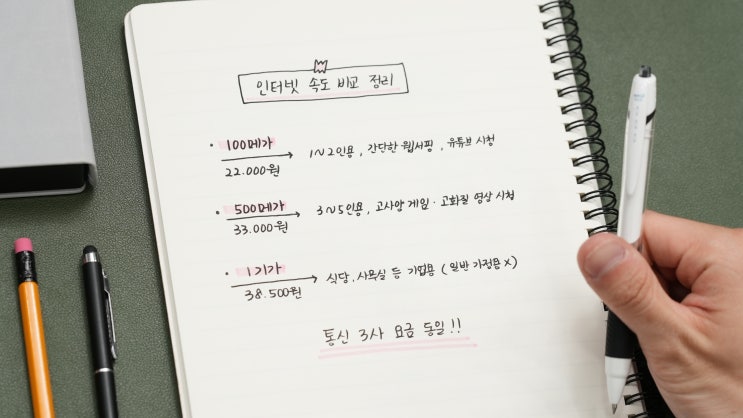 인터넷 속도 비교 정리
· 100메가 → 1~2인용, 간단한 웹서핑, 유튜브 시청
22.000원
· 500메가 → 3~5인용, 고사양 게임·고화질 영상 시청
33.000원
· 1기가 → 식당, 사무실 등 기업용 (일반 가정용 X)
38.500원
통신 3사 요금 동일!!